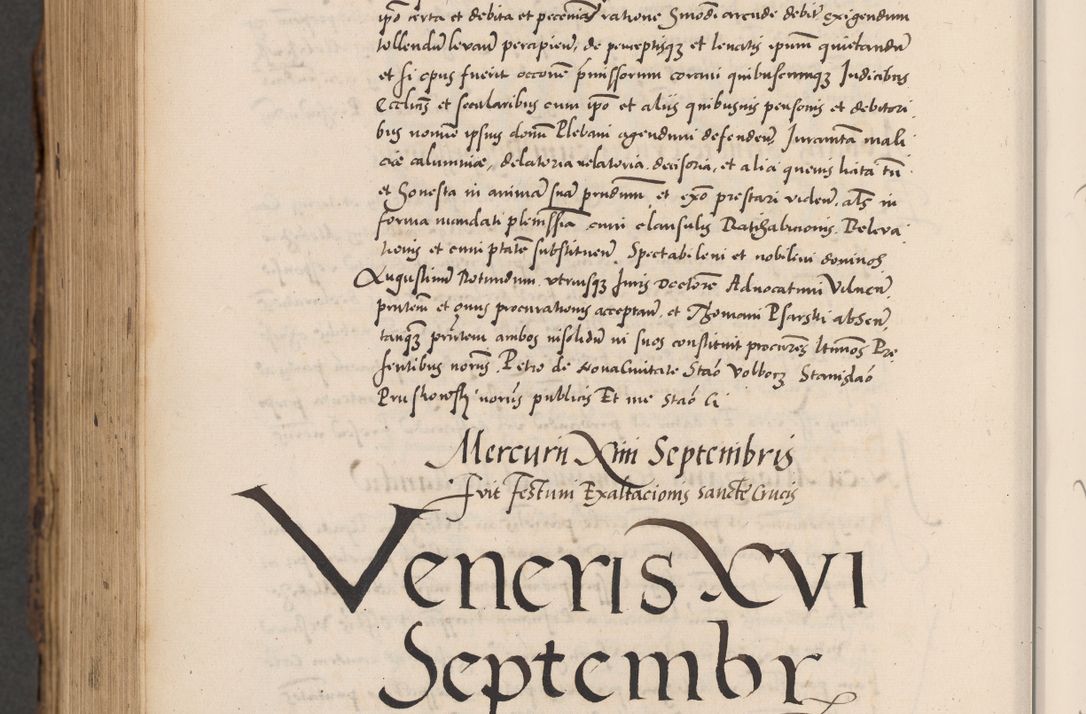 ipso certa et debita et pecuniaria ratione Smodi arende debit exigendum
tollendum levan percipien, de perceptisque et levatis ipsum quietandum
et si opus fuerit occone premissorum coram quibuscumque Judicibus
Ecclicis et secularibus cum ipso et aliis quibusuis personis et debitori
bus nomine ipsius domi Plebani agendum defenden, Juramta mali
cie calumniae, delatoria relatoria decisoria, et alia quevis licita tn
et honesta in animam suam prndum, et exo prestari viden, als in
forma mandati plenissia cum clausulis Ratihabicionis Releva
tionis et cum ptate substituen, Spectabilem et nobilem dominos
Augustinum Rotundum vtriusque Juris Doctore Advocatum Vilnen,
pntem et onus procurationis acceptan, et Thomam Psarski absen,
tanq prntem ambos insolidum in suos constituit procures ltimos Pre
sentibus noriis, Petro de Nova Civitate Stao Volborz Stanislao
Pruskowski noriis publicis Et me Stao Ci
Mercurii XIIII Septembris
fuit festum Exaltacionis sancte Crucis
Veneris XVI
Septembr